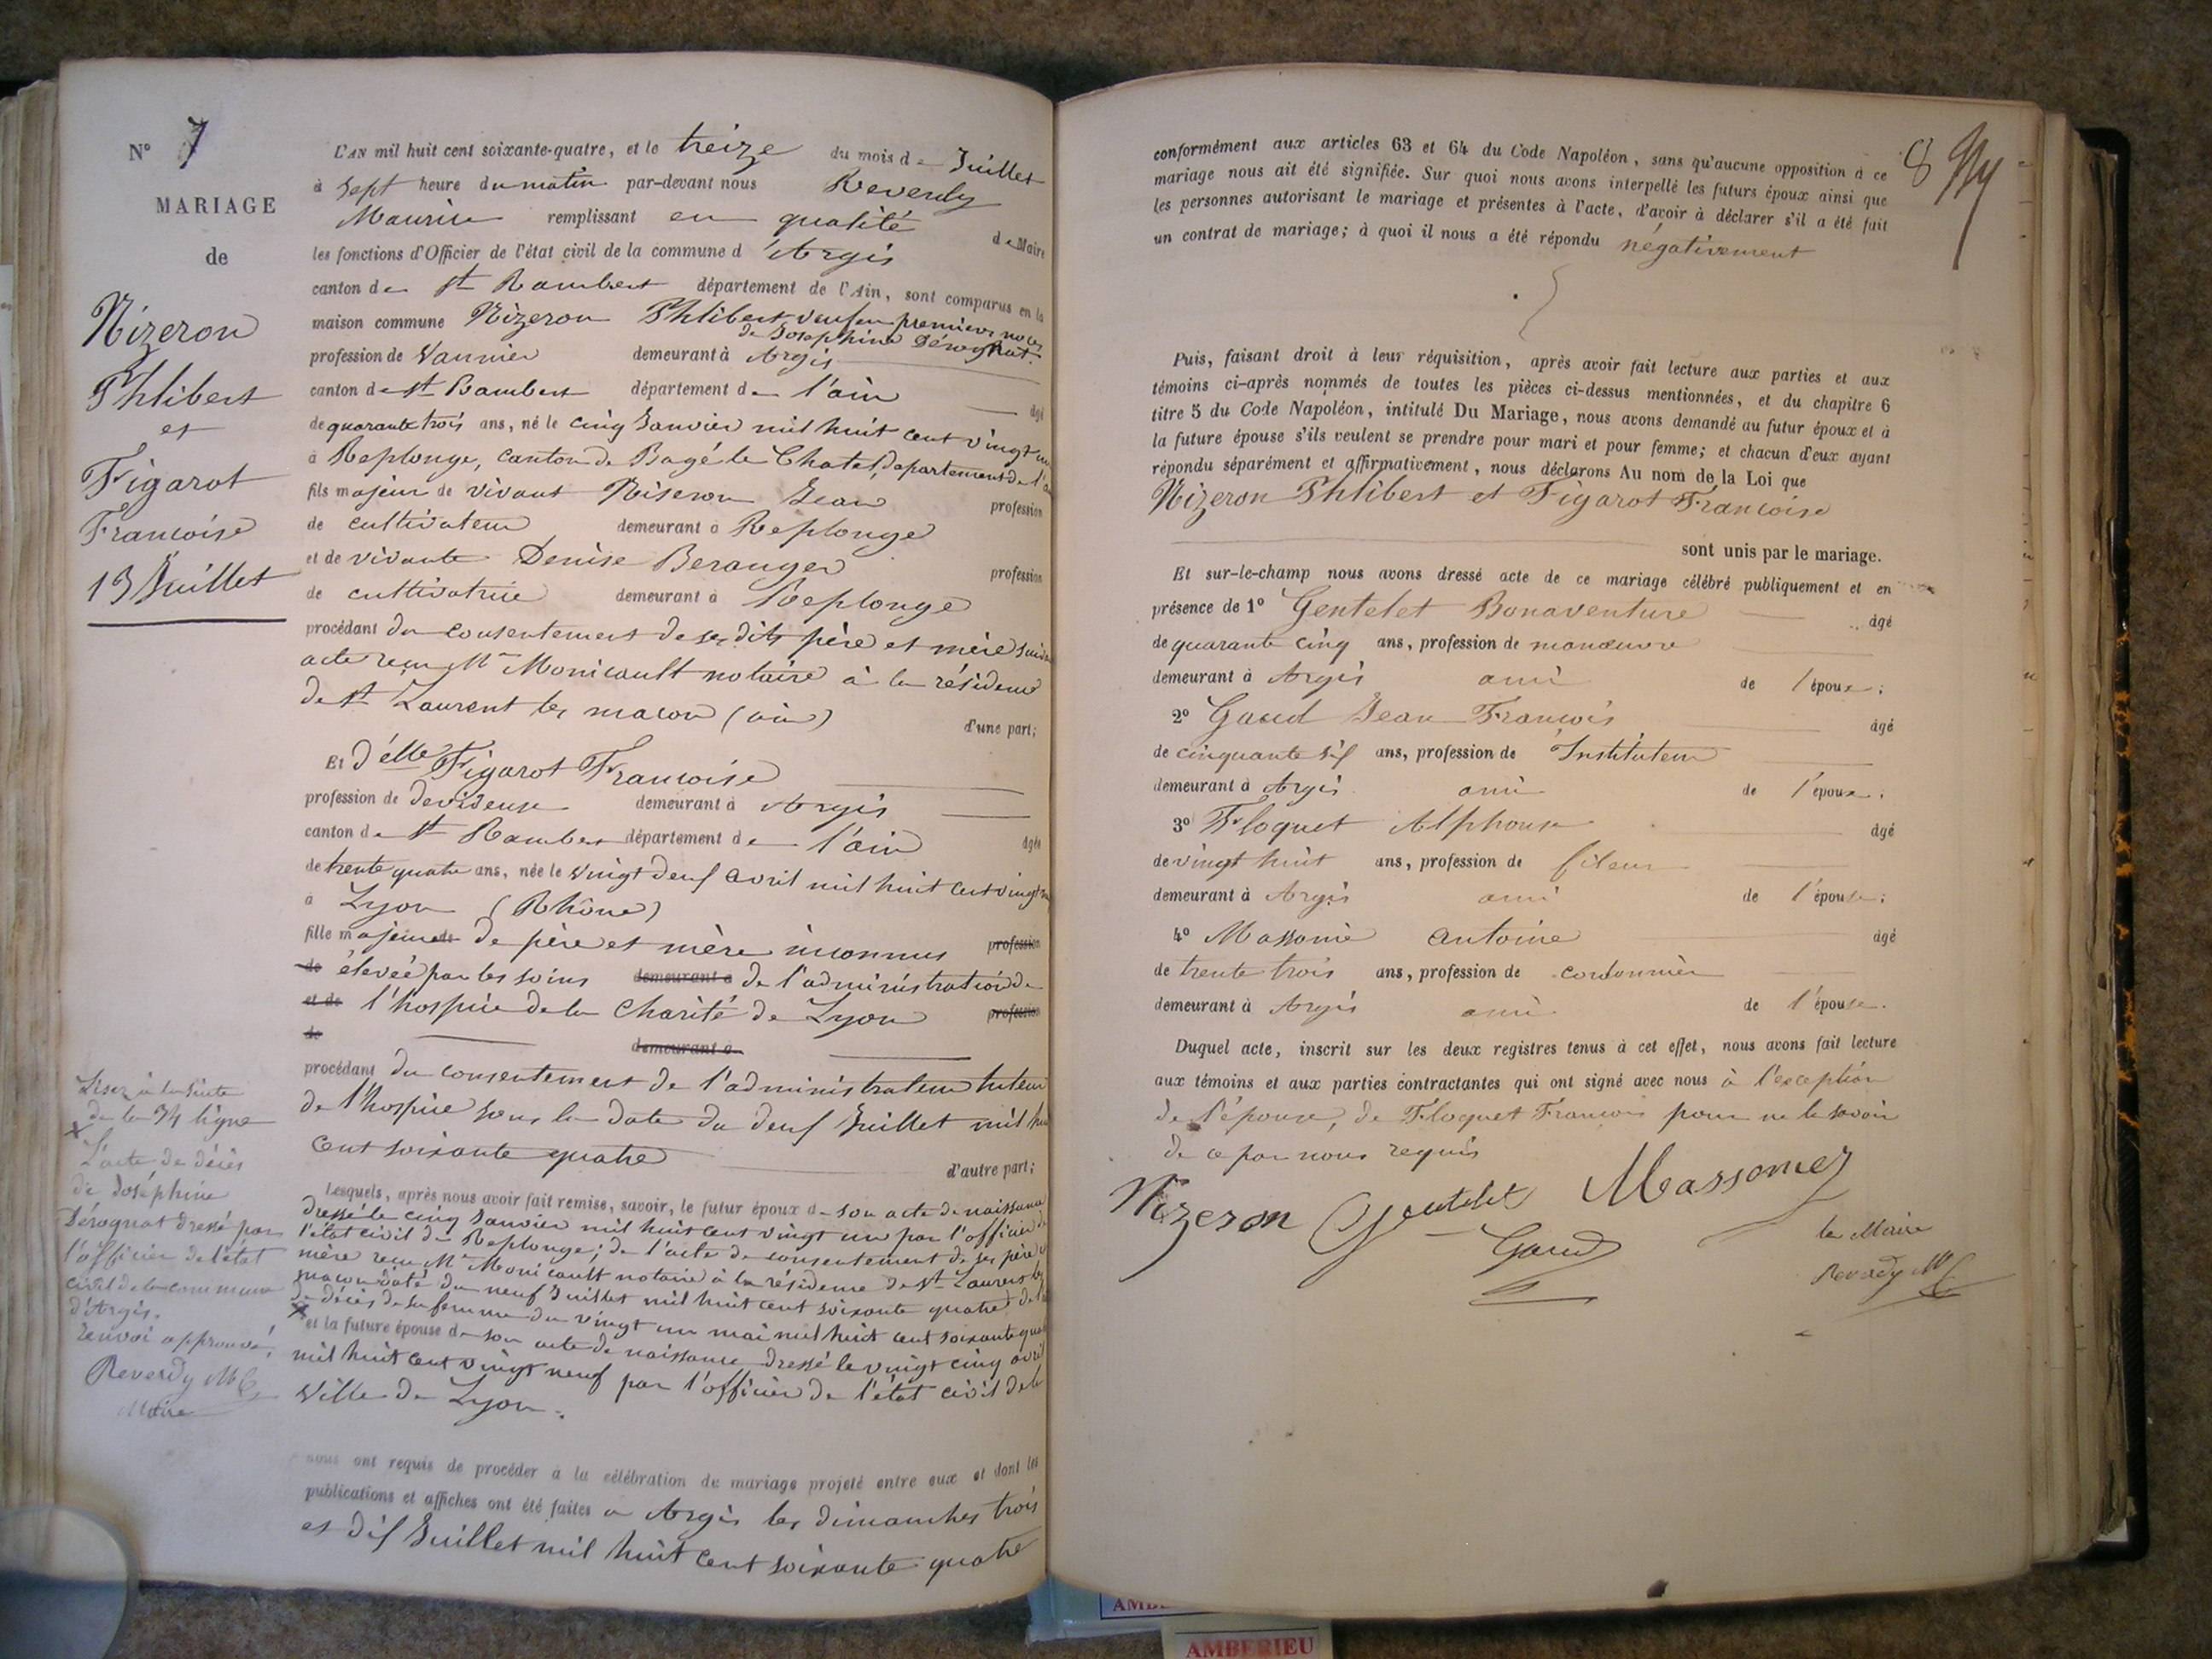 N° 7
MARIAGE
de
Nizeron
Phlibert
et
Figarot
Francoise
13 Juillet
L'AN mil huit cent soixante-quatre, et le treize du mois de Juillet
à sept heure du matin par-devant nous Reverdy
Maurice remplissant en qualité de Maire
les fonctions d'Officier de l'état civil de la commune d'Argis
canton de St Rambert département de l'Ain, sont comparus en la
maison commune Nizeron Phlibert veuf en premières noces
de Josephine Dérognat.
profession de Vannier demeurant à Argis
canton de St Rambert département de l'ain âgé
de quarante trois ans, né le cinq Janvier mil huit cent vingt un
à Replonge, canton de Bagé le Chatel, departement de l'ain
fils majeur de vivant Niseron Jean profession
de cultivateur demeurant à Replonge
et de vivante Denise Beranger profession
de cultivatrice demeurant à Replonge
procédant du consentement de ses dits père et mère suivant
acte reçu Me Monicault notaire à la résidence
de St Laurent les macon (ain) d'une part;
Et d'elle Figarot Francoise
profession de devideuse demeurant à Argis
canton de St Rambert département de l'ain âgée
de trente quatre ans, née le vingt deux avril mil huit cent vingt
à Lyon (Rhône)
fille majeure de de père et mère inconnus profession
de élevée par les soins demeurant à de l'administration de
et de l'hospice de la Charité de Lyon profession
de demeurant à
procédant du consentement de l'administrateur tuteur
de l'hospice sous la date du deux Juillet mil huit
cent soixante quatre d'autre part;
Lesquels, après nous avoir fait remise, savoir, le futur époux de son acte de naissance
dressé le cinq Janvier mil huit cent vingt un par l'officier de
l'état civil de Replonge; de l'acte de consentement de ses père et
mère reçu Me Monicault notaire à la résidence de St Laurent les
macon daté du neuf Juillet mil huit cent soixante quatre de
de décès de sa femme du vingt un mai mil huit cent soixante quatre
x et la future épouse de son acte de naissance dressé le vingt cinq avril
mil huit cent vingt neuf par l'officier de l'état civil de la
Ville de Lyon.
nous ont requis de procéder à la célébration du mariage projeté entre eux et dont les
publications et affiches ont été faites à Argis les dimanches trois
et dix Juillet mil huit cent soixante quatre
Lisez à la suite
de la 34 ligne
x
L'acte de décès
de Joséphine
Dérognat dressé par
l'officier de l'état
civil de la commune
d'Argis.
renvoi approuvé,
Reverdy
Maire
8
conformément aux articles 63 et 64 du Code Napoléon, sans qu'aucune opposition à ce
mariage nous ait été signifiée. Sur quoi nous avons interpellé les futurs époux ainsi que
les personnes autorisant le mariage et présentes à l'acte, d'avoir à déclarer s'il a été fait
un contrat de mariage; à quoi il nous a été répondu négativement
Puis, faisant droit à leur réquisition, après avoir fait lecture aux parties et aux
témoins ci-après nommés de toutes les pièces ci-dessus mentionnées, et du chapitre 6
titre 5 du Code Napoléon, intitulé Du Mariage, nous avons demandé au futur époux et à
la future épouse s'ils veulent se prendre pour mari et pour femme; et chacun d'eux ayant
répondu séparément et affirmativement, nous déclarons Au nom de la Loi que
Nizeron Phlibert et Figarot Francoise
sont unis par le mariage.
Et sur-le-champ nous avons dressé acte de ce mariage célébré publiquement et en
présence de 1° Gentelet Bonaventure âgé
de quarante cinq ans, profession de manœuvre
demeurant à Argis ami de l'époux;
2° Gaud Jean Francois âgé
de cinquante six ans, profession de Instituteur
demeurant à Argis ami de l'époux.
3° Floquet Alphonse âgé
de vingt huit ans, profession de fileur
demeurant à Argis ami de l'épouse;
4° Massonié Antoine âgé
de trente trois ans, profession de cordonnier
demeurant à Argis ami de l'épouse.
Duquel acte, inscrit sur les deux registres tenus à cet effet, nous avons fait lecture
aux témoins et aux parties contractantes qui ont signé avec nous à l'exception
de l'épouse, de Floquet Francois pour ne le savoir
de ce par nous requis
Nizeron Gentelet Massonnez
Gaud
le Maire
Reverdy
AMBERIEU